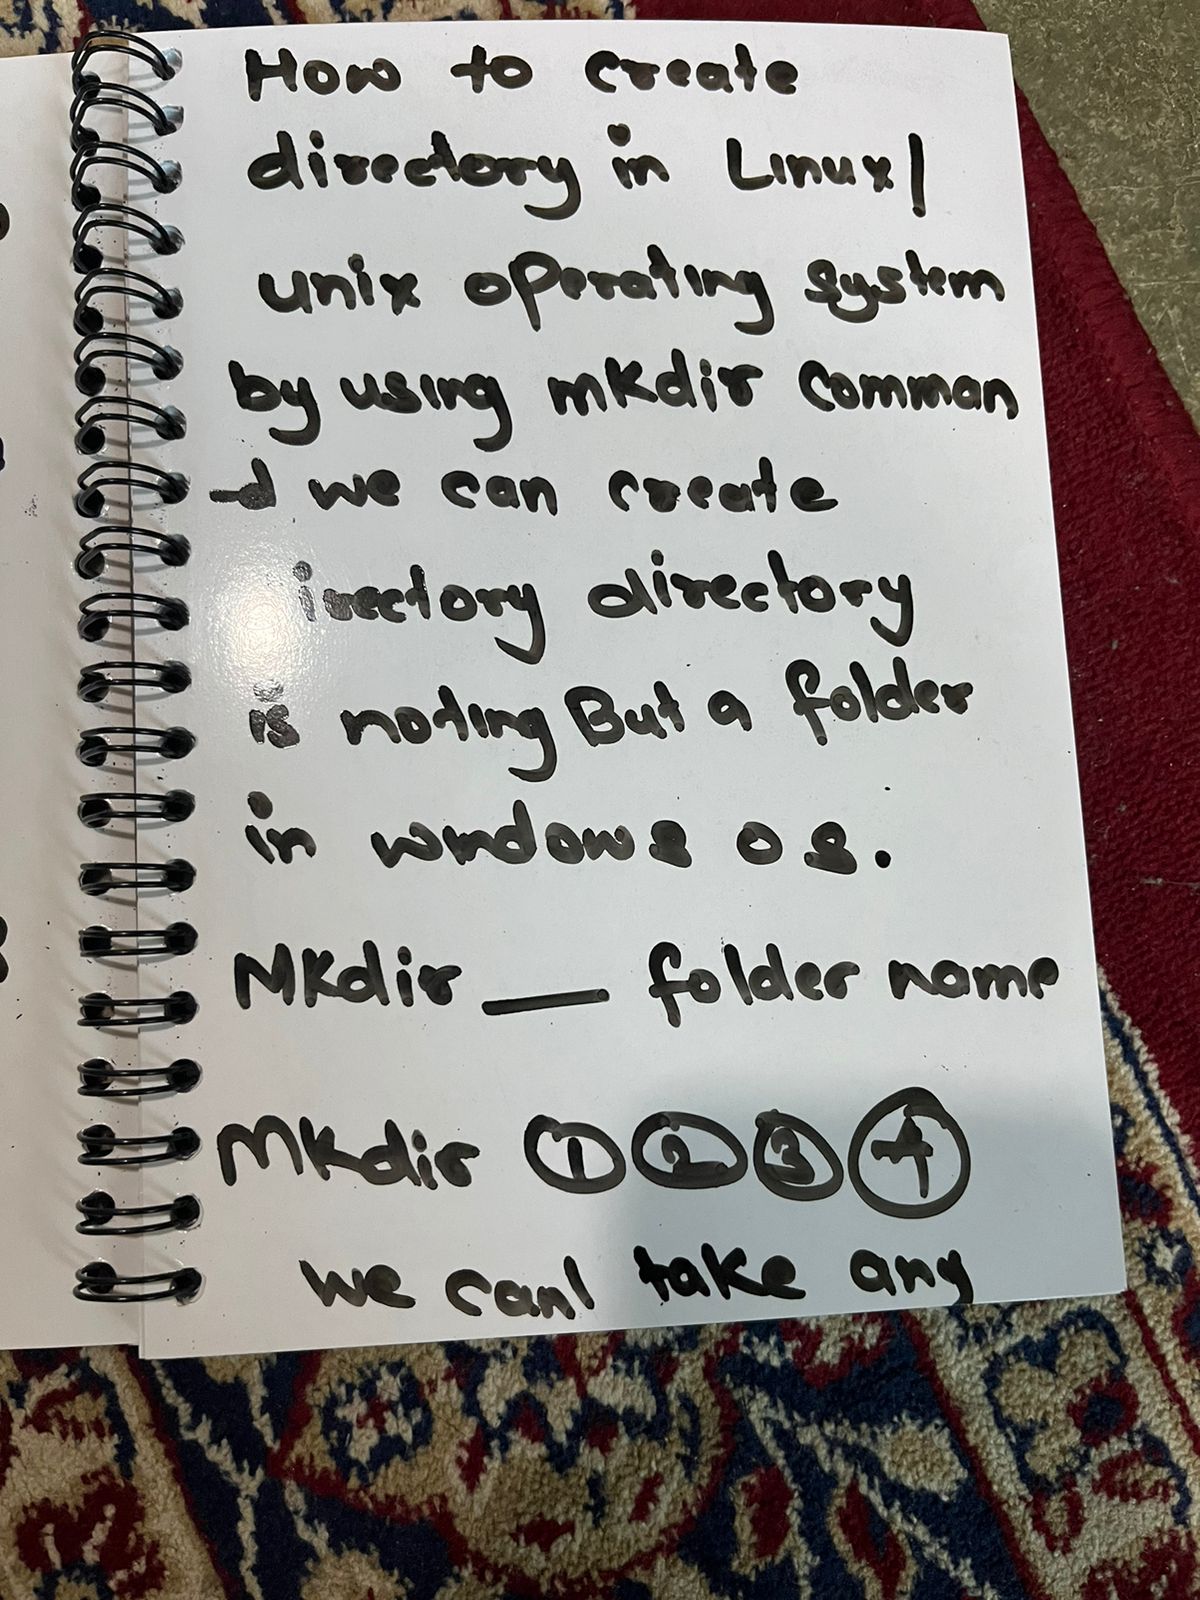 How to create
directory in Linux/
unix operating system
by using mkdir comman
d we can create
irectory directory
is noting But a folder
in windows os.
Mkdir __ folder name
Mkdir ① ② ③ ④
we can take any